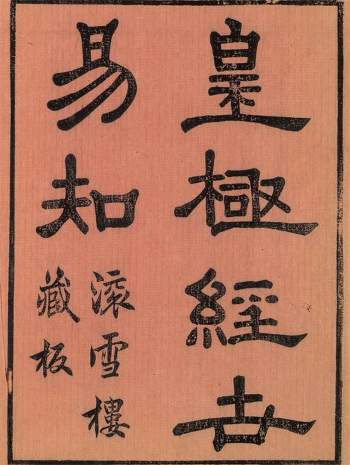 皇極經世
易知
滚雪樓
藏板